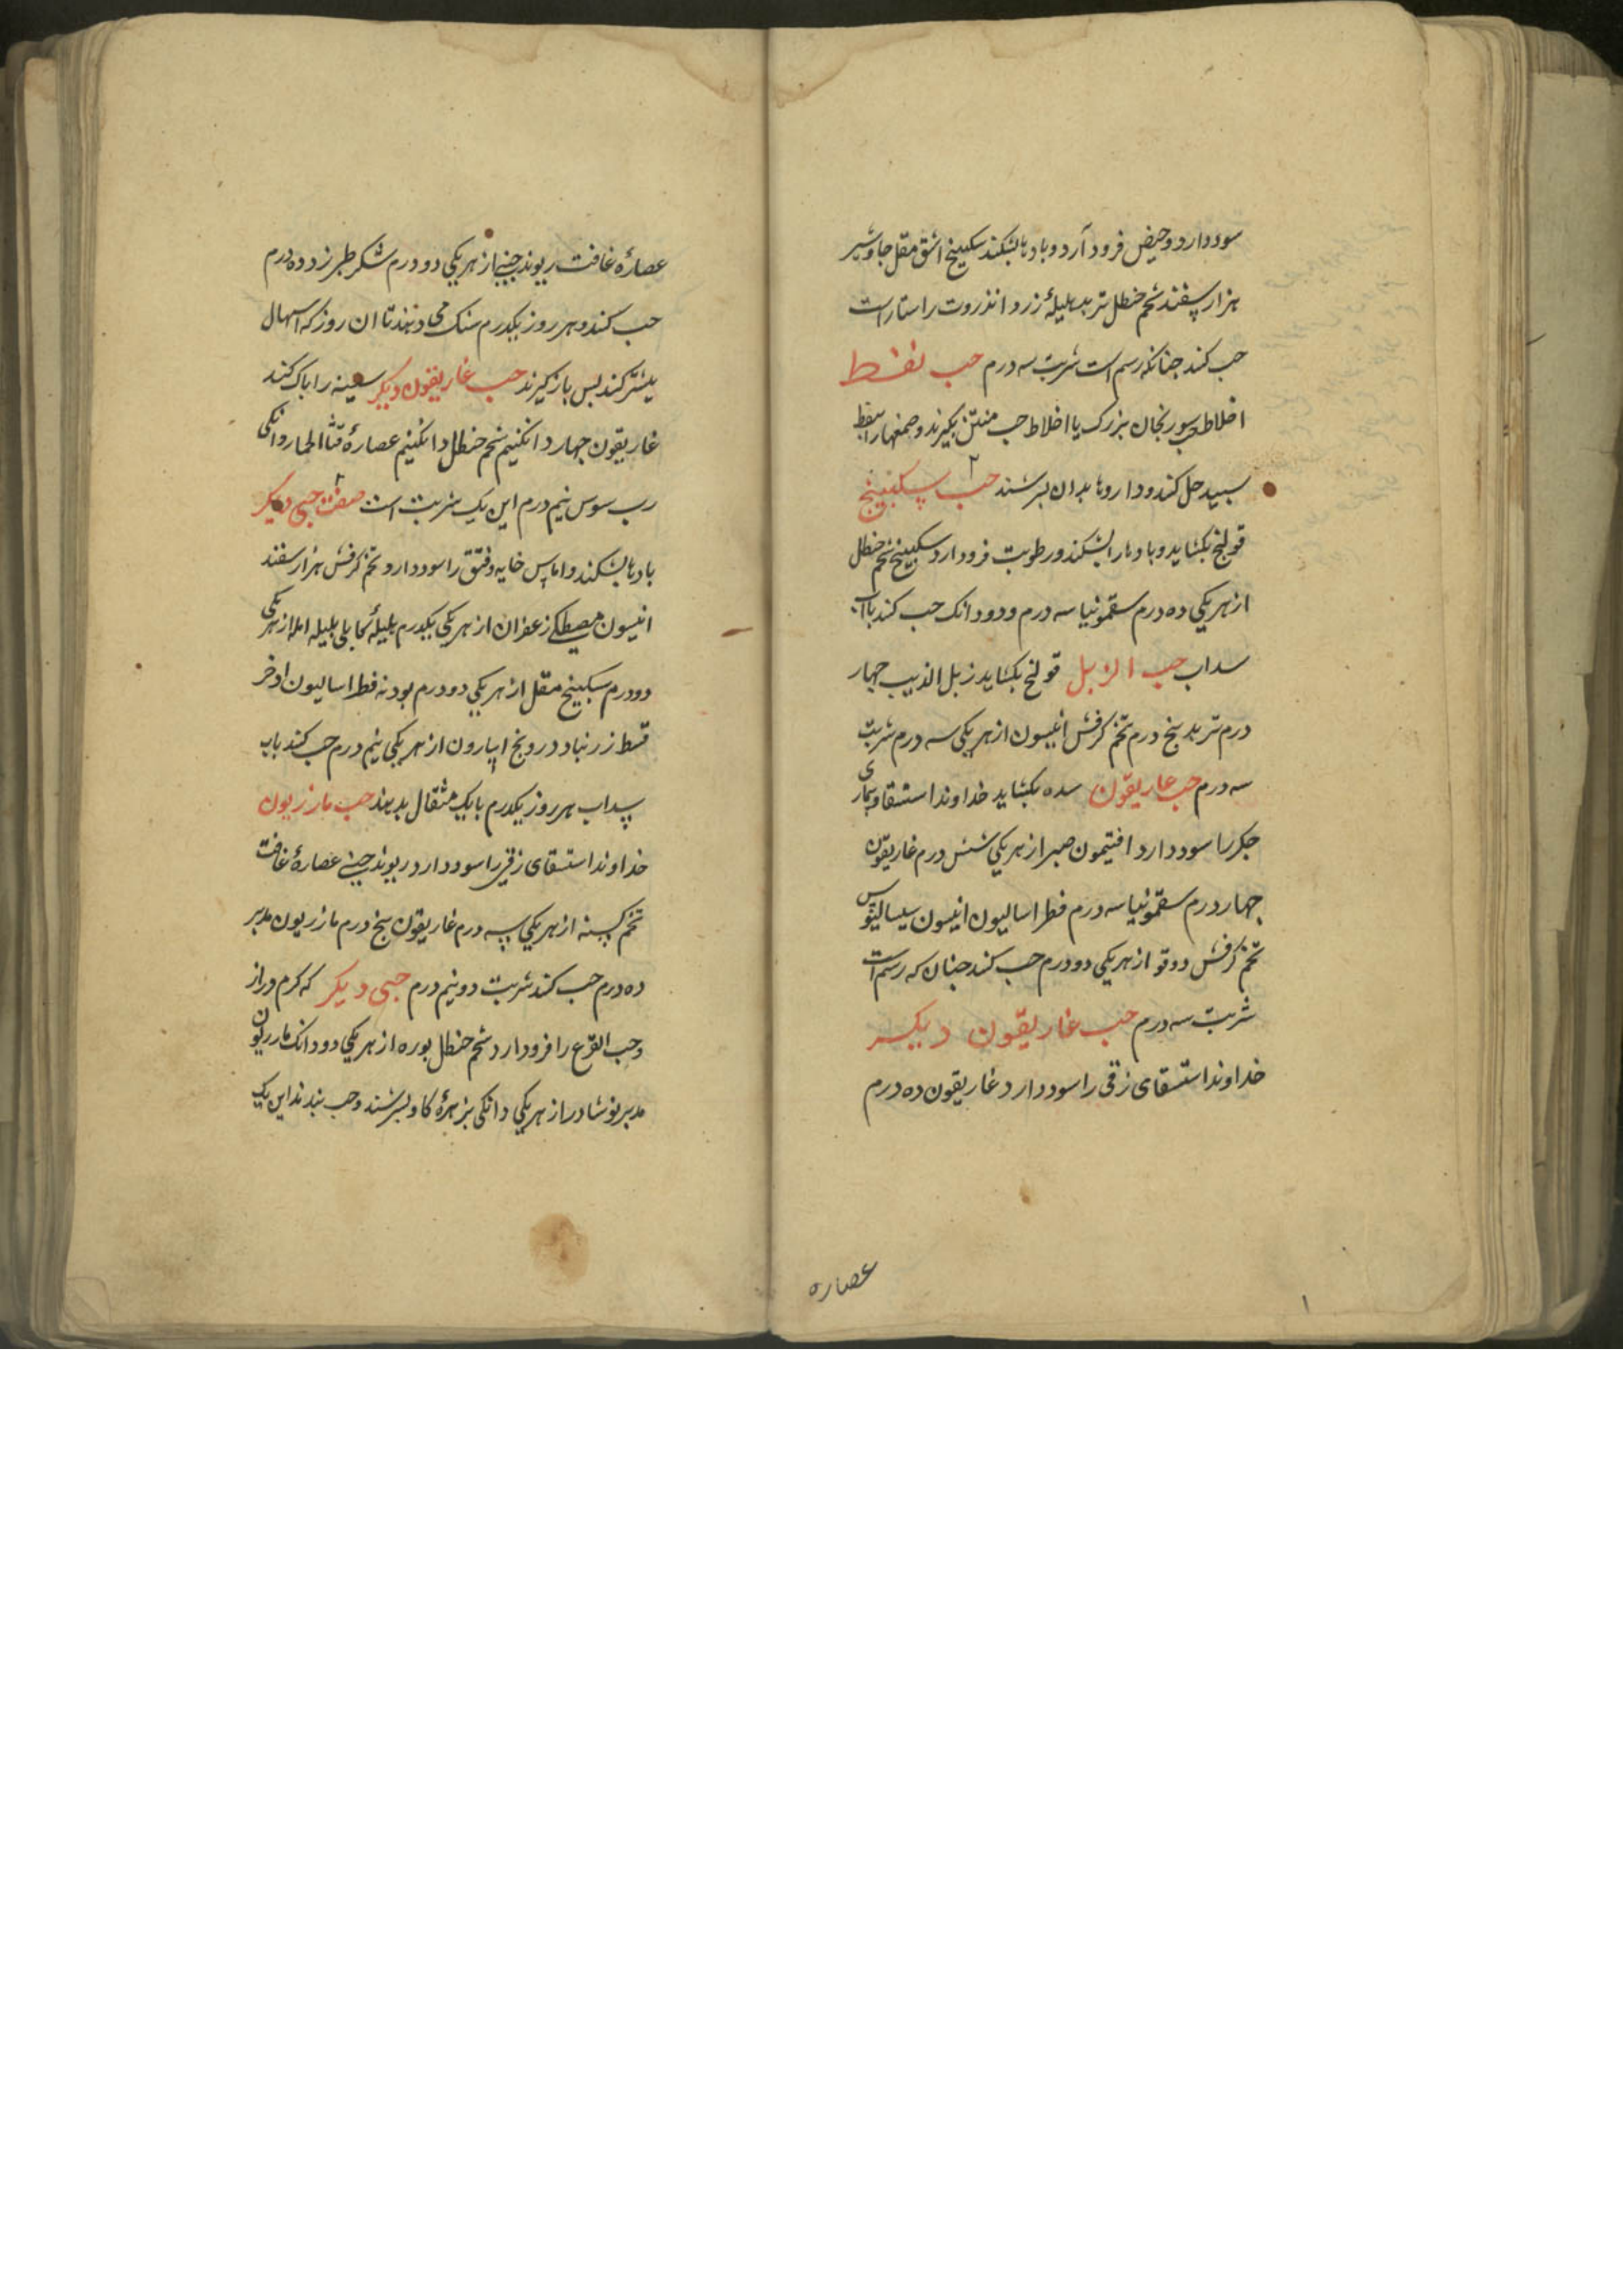 سود دارد و حیض فرود آرد و بادها بشکند سکبینج اشق مقل جاوشیر
هزار سفند شحم حنطل تربد هلیلهٔ زرد انذروت راستا راست
حب کند جنانکه رسم است شربت سه درم حب نفط
اخلاط حب سورنجان بزرک یا اخلاط حب منتن بکیرند و صمغها را بنفط
سبید حل کند و داروها بدان بسرشند حب سکبینج
قولنج بکشاید و بادها را بشکند و رطوبت فرود ارد سکبینج شحم حنطل
از هر یکی ده درم سقمونیا سه درم و دو دانک حب کند باب
سداب حب الزبل قولنج بکشاید زبل الذیب جهار
درم تربد بنج درم تخم کرفش انیسون از هر یکی سه درم شربت
سه درم حب غاریقون سده بکشاید خداوند استسقا و بیماری
جکر را سود دارد افتیمون صبر از هر یکی شش درم غاریقون
جهار درم سقمونیا سه درم فطراسالیون انیسون سیسالیوس
تخم کرفش دوقو از هر یکی دو درم حب کند جنان که رسم است
شربت سه درم حب غاریقون دیکر
خداوند استسقای زقی را سود دارد غاریقون ده درم
عصاره
عصارهٔ غافت ریوند جینی از هر یکی دو درم شکر طبرزد ده درم
حب کند و هر روز یکدرم سنک می دهند تا ان روز که اسهال
بیشتر کند بس باز کیرند حب غاریقون دیکر سینه را باک کند
غاریقون جهار دانکنیم شحم حنطل دانکنیم عصارهٔ قثا الحمار دانکی
رب سوس نیم درم این یک شربت است صفت حبی دیکر
بادها بشکند و اماس خایه و فتق را سود دارد تخم کرفش هزار سفند
انیسون مصطکی زعفران از هر یکی یکدرم هلیلهٔ کابلی بلیله امله از هر یکی
دو درم سکبینج مقل از هر یکی دو درم بودنه فطراسالیون اذخر
قسط زرنباد درونج اسارون از هر یکی نیم درم حب کند باب
سداب هر روز یکدرم با یک مثقال بدهند حب مازریون
خداوند استسقای زقی را سود دارد ریوند جینی عصارهٔ غافت
تخم کسنه از هر یکی سه درم غاریقون بنج درم مازریون مدبر
ده درم حب کند شربت دو نیم درم حبی دیکر که کرم دراز
و حب القرع را فرود ارد شحم حنطل بوره از هر یکی دو دانک مازریون
مدبر نوشادر از هر یکی دانکی بزهرهٔ کاو بسرشند و حب بندند این یک